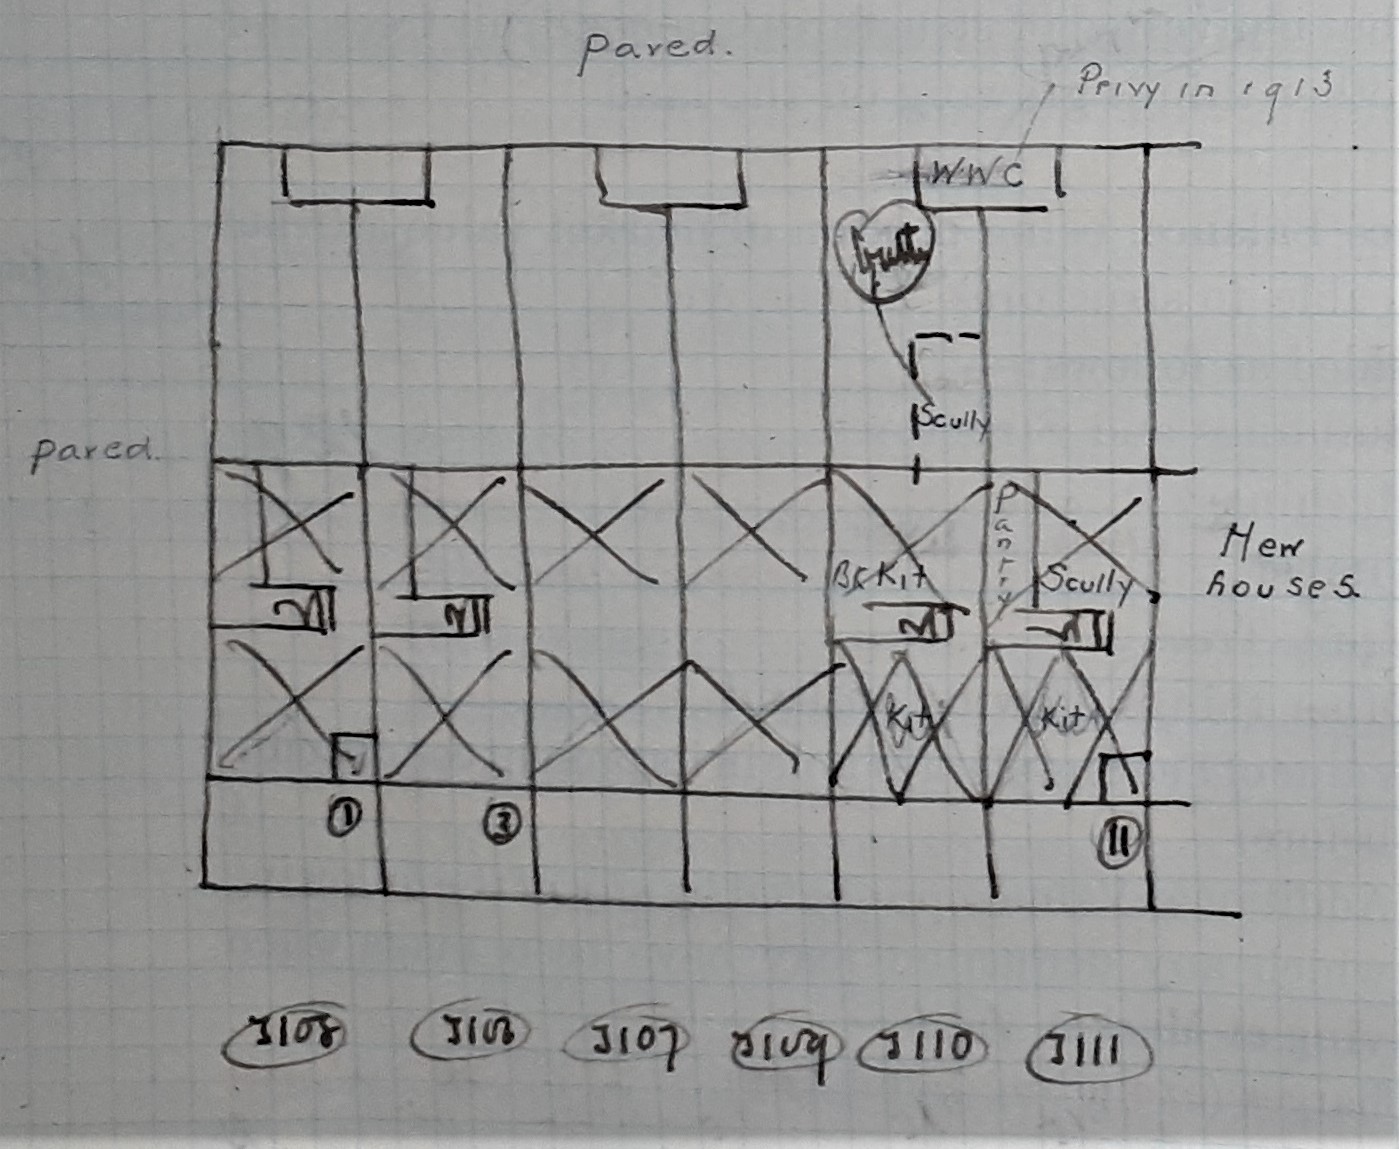 paved.
Privy in 1913
WWC
Scully
paved.
Pantry
New
houses.
Bk Kit
Scully
Kit
Kit
1
3
11
J107
J109
J110
J111